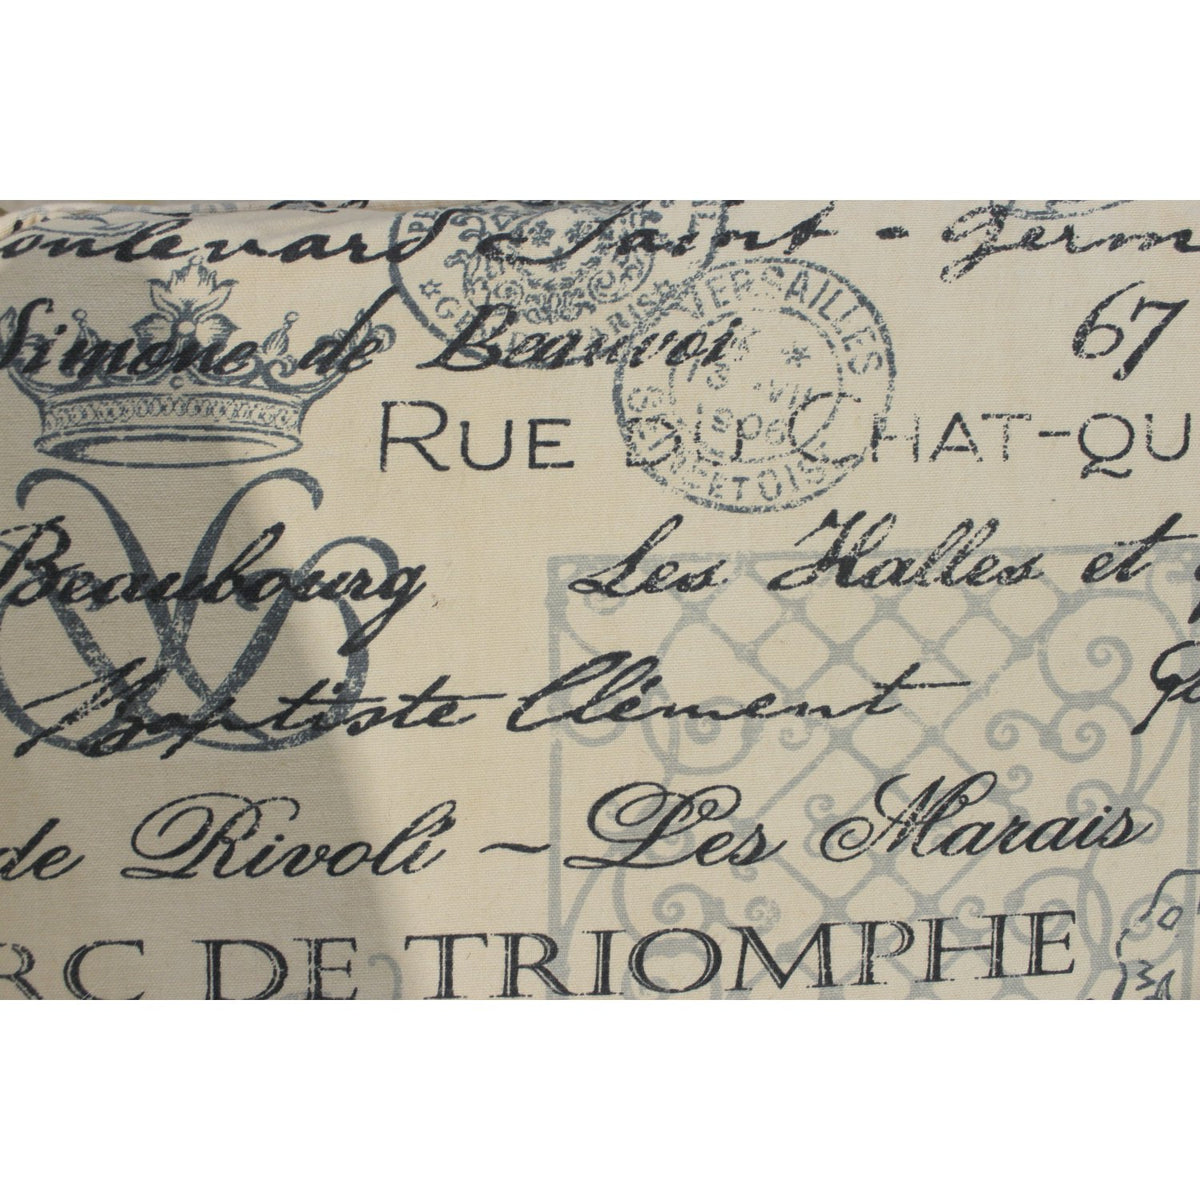 oulevard Saint - Germ
Simone de Beauvoi
67
VERSAILLES
13 VII
1906
SEINE ET OISE
RUE DU CHAT-QU
Beaubourg
Les Halles et
Baptiste Clément
de Rivoli ~ Les Marais
RC DE TRIOMPHE